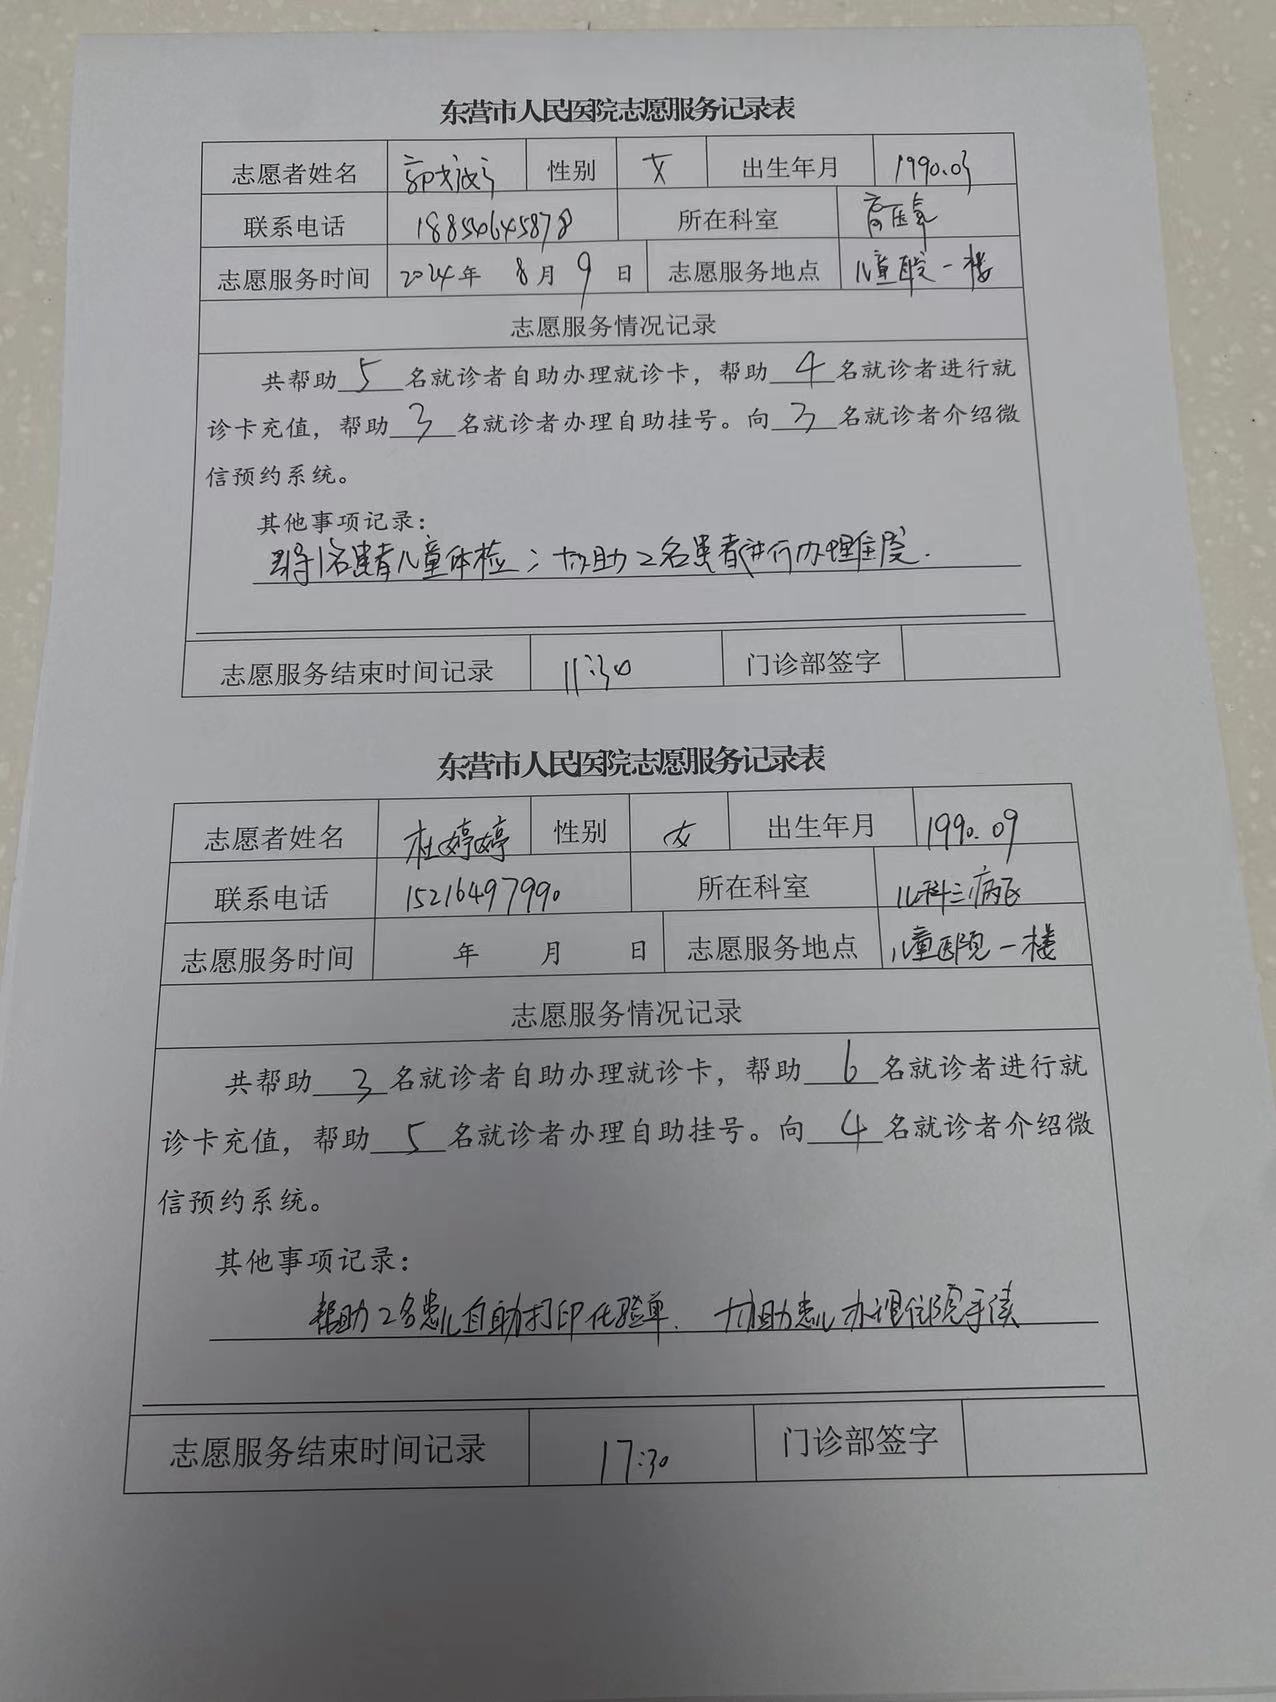 东营市人民医院志愿服务记录表
志愿者姓名 郭 性别 女 出生年月 1990.03
联系电话 18854645878 所在科室 高压氧
志愿服务时间 2024年 8月 9日 志愿服务地点 儿童医院一楼
志愿服务情况记录
共帮助 5 名就诊者自助办理就诊卡，帮助 4 名就诊者进行就
诊卡充值，帮助 3 名就诊者办理自助挂号。向 3 名就诊者介绍微
信预约系统。
其他事项记录：
引导1名患者儿童体检；协助2名患者进行办理住院.
志愿服务结束时间记录 11:30 门诊部签字
东营市人民医院志愿服务记录表
志愿者姓名 杜婷婷 性别 女 出生年月 1990.09
联系电话 15216497990 所在科室 儿科三病区
志愿服务时间 年 月 日 志愿服务地点 儿童医院一楼
志愿服务情况记录
共帮助 3 名就诊者自助办理就诊卡，帮助 6 名就诊者进行就
诊卡充值，帮助 5 名就诊者办理自助挂号。向 4 名就诊者介绍微
信预约系统。
其他事项记录：
帮助2名患儿自助打印化验单. 协助患儿办理住院手续
志愿服务结束时间记录 17:30 门诊部签字